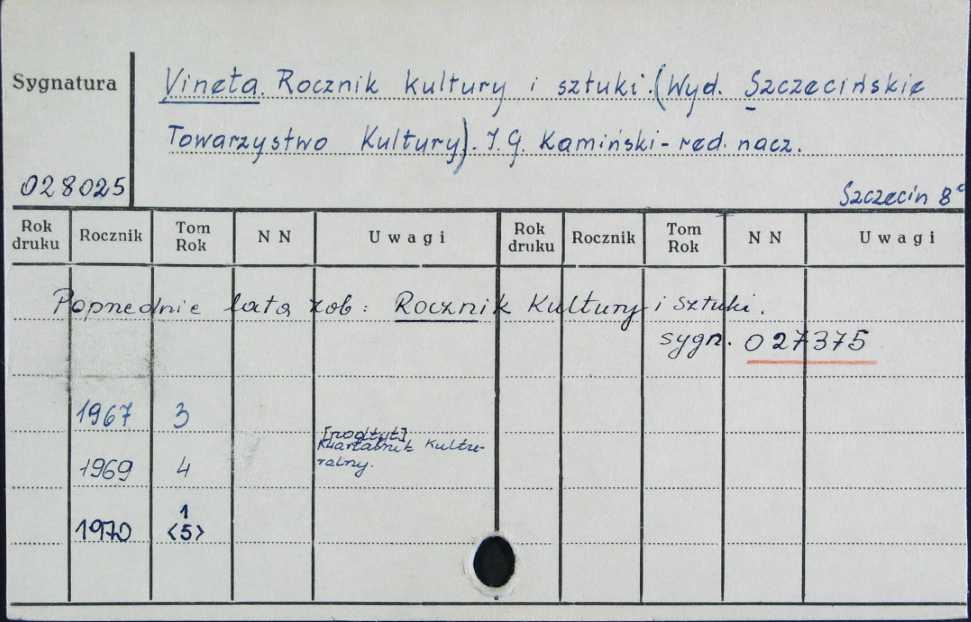 Sygnatura
Vineta. Rocznik kultury i sztuki. (Wyd. Szczecińskie
Towarzystwo Kultury). I. G. Kamiński - red. nacz.
028025
Szczecin 8°
Rok druku Rocznik Tom Rok NN Uwagi Rok druku Rocznik Tom Rok NN Uwagi
Poprzednie lata zob: Rocznik Kultury i Sztuki.
sygn. 027375
1967 3
[podtyt]
Kwartalnik Kultu-
1969 4 ralny.
1
1970 <5>